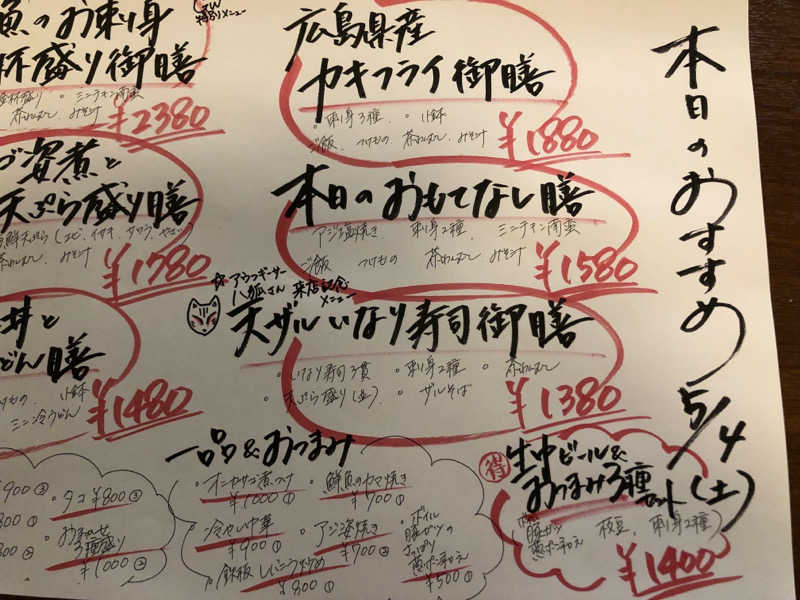 本日のおすすめ 5/4(土)
広島県産
カキフライ御膳
・刺身3種 ・小鉢
ご飯 つけもの 茶わんむし みそ汁
¥1880
本日のおもてなし膳
アジ塩焼き 刺身2種 ミニチキン南蛮
ご飯 つけもの 茶わんむし みそ汁
¥1580
八狐さん 来店記念
メニュー
天ザルいなり寿司御膳
・いなり寿司3貫 ・刺身2種 ・茶わんむし
・天ぷら盛り ・ザルそば
¥1380
得
生中ビール&
おつまみ3種
セット
枝豆 刺身2種)
¥1400
魚のお刺身
杯盛り御膳
ミニチキン南蛮
茶わんむし みそ汁
¥2380
姿煮と
天ぷら盛り膳
茶わんむし みそ汁
¥1780
丼と
どん膳
小鉢
ミニ冷うどん
¥1480
一品&おつまみ
¥1000①
・鮮魚のカマ焼き
¥900①
冷やし中華
¥900①
・アジ姿焼き
¥700②
・ボイル
豚ガツの
さっぱり
¥500①
・鉄板
¥800①
900③
・タコ ¥800③
・おまかせ
3種盛り
¥1000②